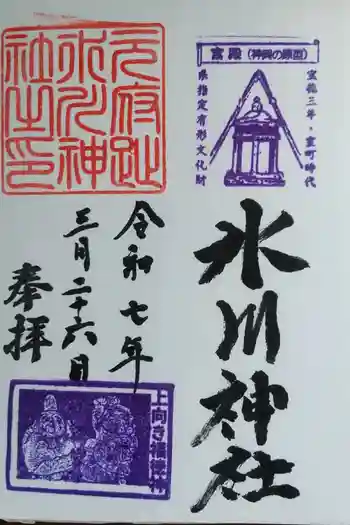 宮殿(神輿の原型)
宝徳三年・室町時代
県指定有形文化財
氷川神社
令和七年
三月二十六日
奉拝
元府趾
氷川神
社之印
上向き狛